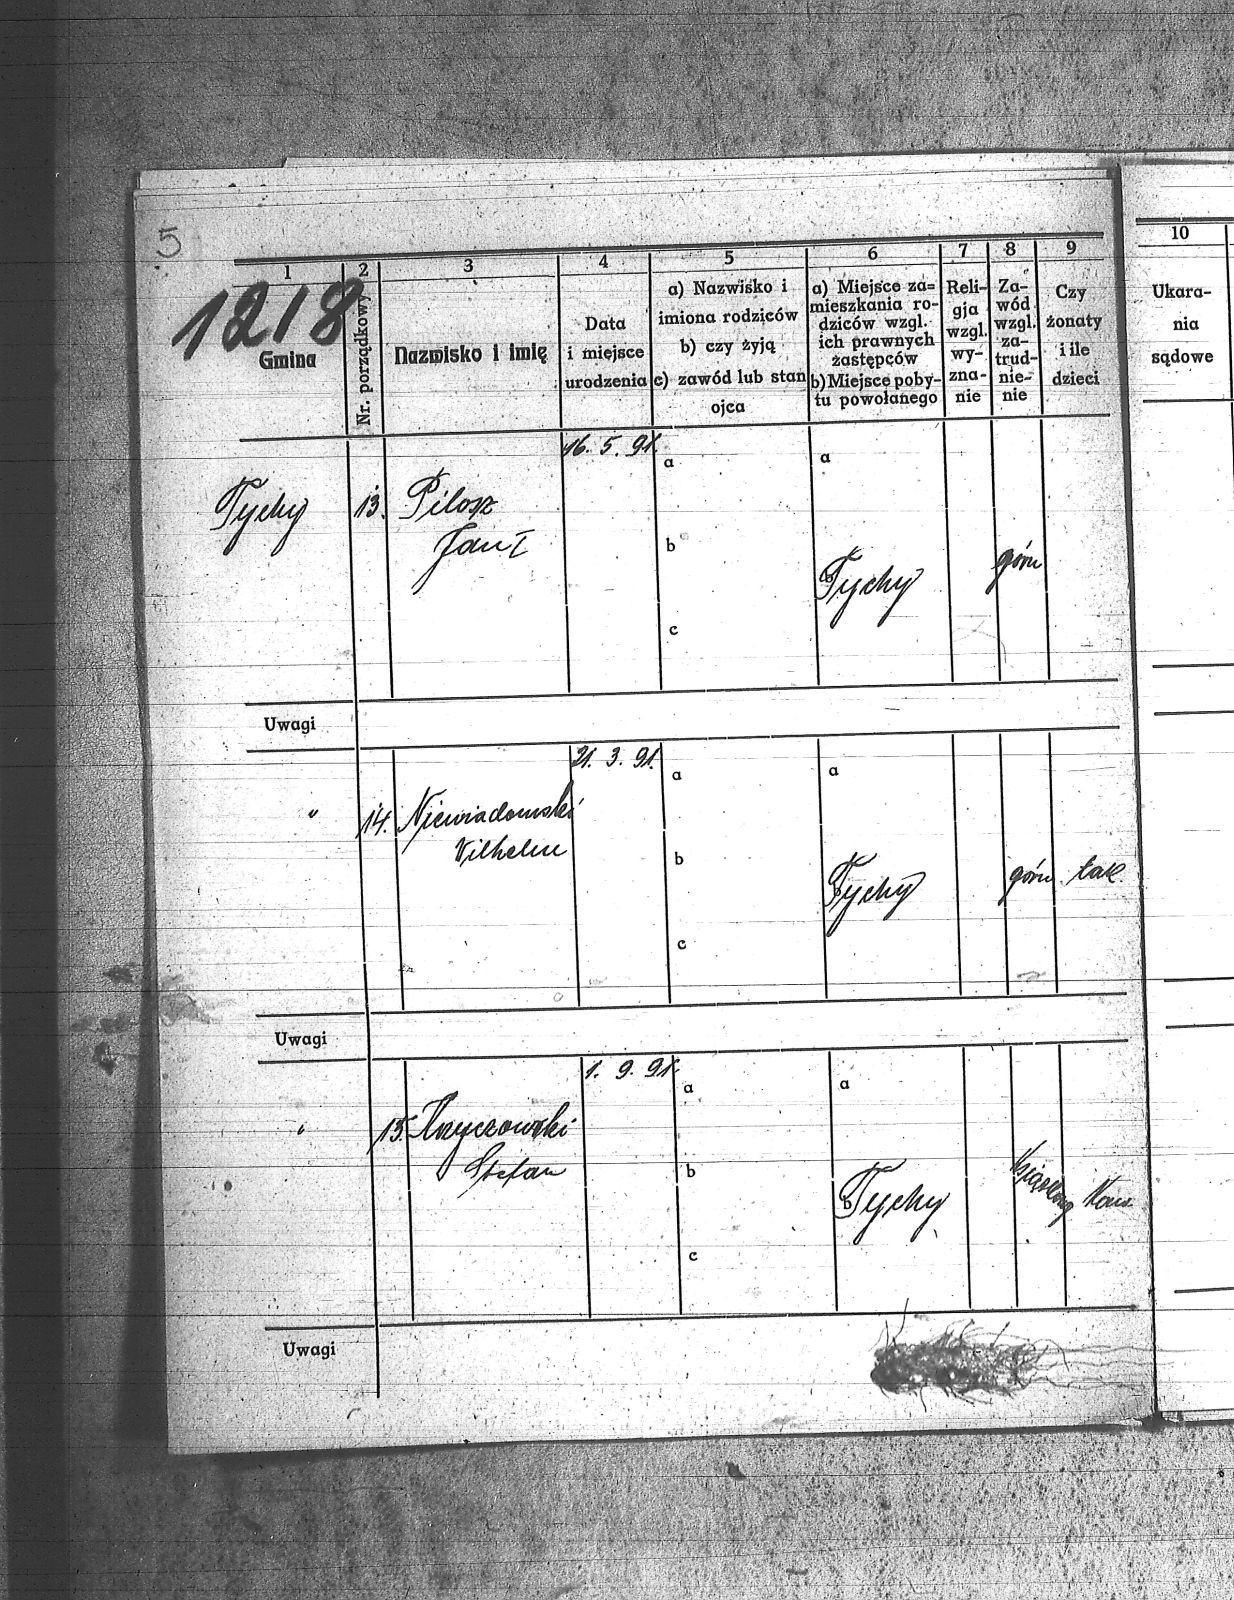 5
1218
1
Gmina
2
Nr. porządkowy
3
Nazwisko i imię
4
Data
i miejsce
urodzenia
5
a) Nazwisko i
imiona rodziców
b) czy żyją
c) zawód lub stan
ojca
6
a) Miejsce za=
mieszkania ro-
dziców wzgl.
ich prawnych
zastępców
b) Miejsce poby-
tu powołanego
7
Reli-
gja
wzgl.
wy-
zna-
nie
8
Za-
wód
wzgl.
za-
trud-
nie-
nie
9
Czy
żonaty
i ile
dzieci
10
Ukara-
nia
sądowe
Tychy
13.
Pilosz
Jan I
16. 5. 91.
a
b
c
a
b
Tychy
górn
Uwagi
"
14.
Niewiadomski
Wilhelm
21. 3. 91.
a
b
c
a
b
Tychy
górn.
tak
Uwagi
"
15.
Stefan
1. 9. 91.
a
b
c
a
b
Tychy
Uwagi